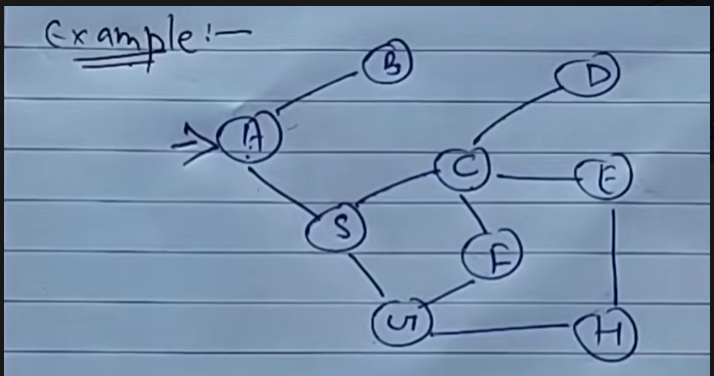 Example:-
B
D
A
C
E
S
F
G
H